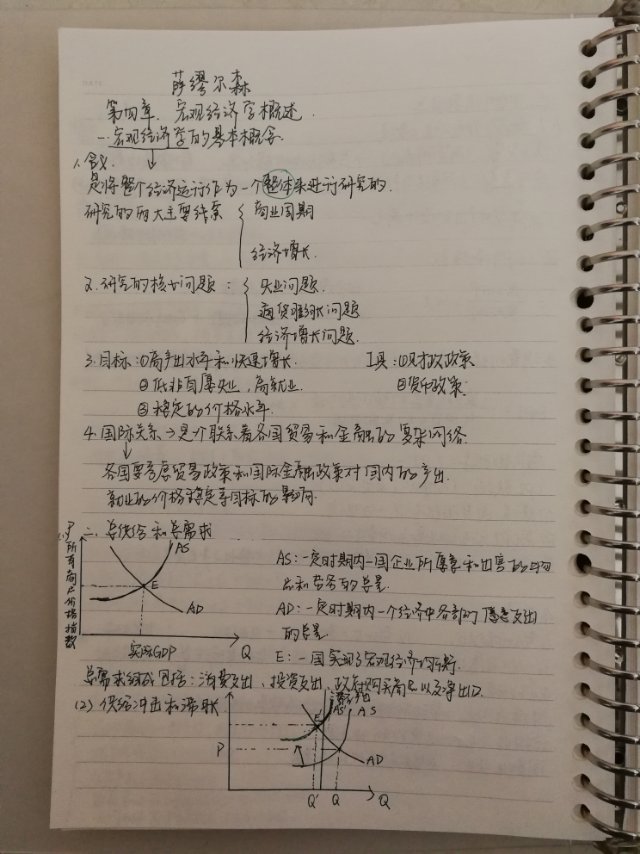 萨缪尔森
第四章. 宏观经济学概述.
一. 宏观经济学的基本概念.
1. 含义.
是将整个经济运行作为一个整体来进行研究的.
研究的两大主要线索 { 商业周期
经济增长.
2. 研究的核心问题: { 失业问题.
通货膨胀问题
经济增长问题.
3. 目标: ①高产出水平和快速增长. 工具: ①财政政策
②低非自愿失业, 高就业. ②货币政策.
③稳定的价格水平.
4. 国际关系 → 是个联系着各国贸易和金融的复杂网络.
各国要考虑贸易政策和国际金融政策对国内的产出.
就业的价格稳定等目标的影响.
二. 总供给和总需求
P
所有商品价格指数
AS
E
AD
实际GDP
Q
AS: 一定时期内一国企业所愿意和出售的
品和劳务的总量.
AD: 一定时期内一个经济中各部门愿意支出
的总量
E: 一国实现了宏观经济均衡.
总需求组成包括: 消费支出、投资支出、政府购买商品以及净出口.
(2) 供给冲击和滞胀
P
E'
AS'
AS
AD
Q'
Q
Q